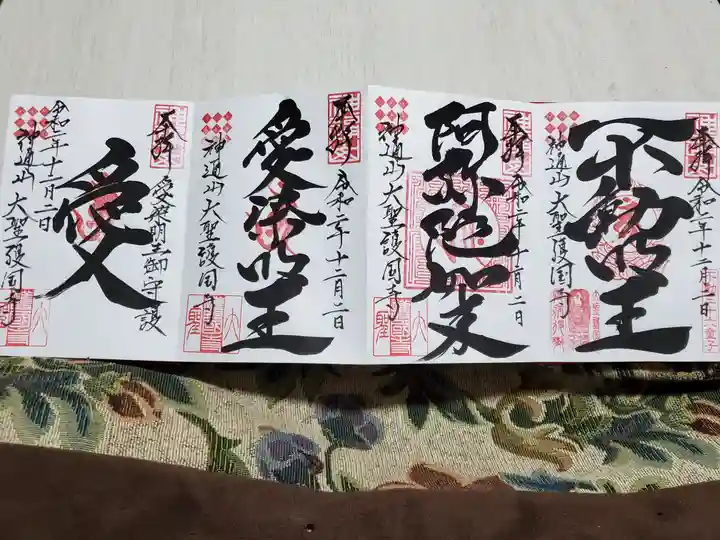 奉拝
令和二年十二月二日
不動明王
神道山 大聖護国寺
奉拝
令和二年十二月二日
阿弥陀如来
神道山 大聖護国寺
奉拝
令和二年十二月二日
愛染明王
神道山 大聖護国寺
奉拝
愛染明王御守護
愛
令和二年十二月二日
神道山 大聖護国寺